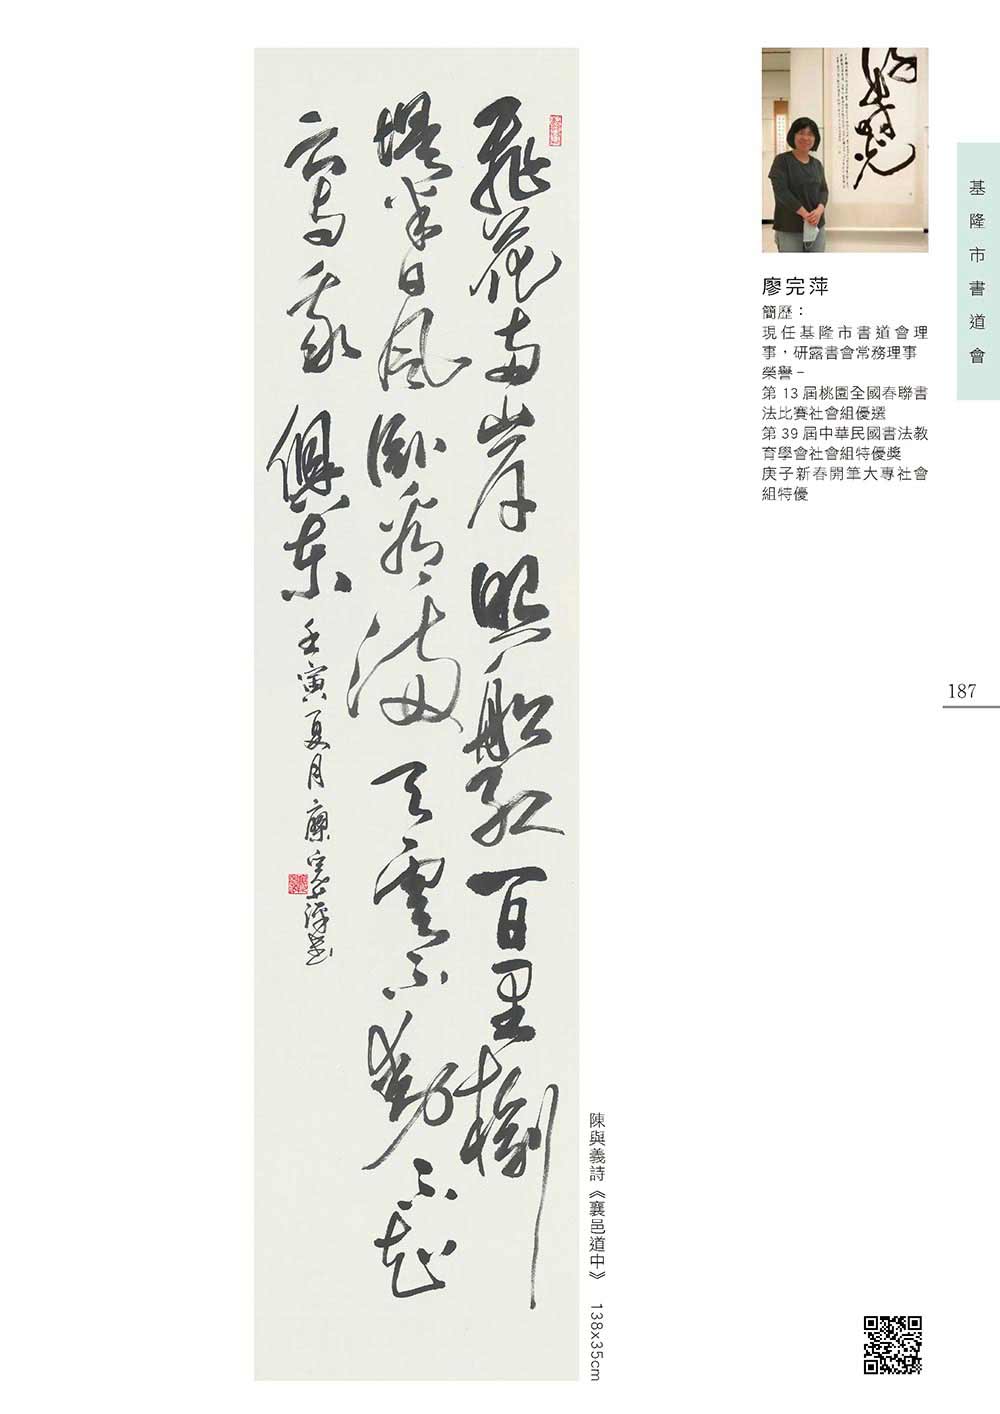 飛花兩岸照船紅百里榆
堤半日風臥看滿天雲不動不知
云与我俱東
壬寅夏月廖完萍書
陳與義詩《襄邑道中》 138x35cm
廖完萍
簡歷：
現任基隆市書道會理
事，研露書會常務理事
榮譽－
第 13 屆桃園全國春聯書
法比賽社會組優選
第 39 屆中華民國書法教
育學會社會組特優獎
庚子新春開筆大專社會
組特優
基隆市書道會
187